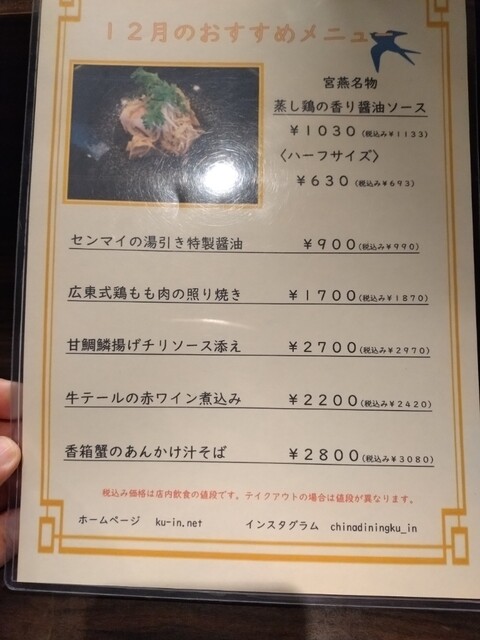 12月のおすすめメニュー
宮燕名物
蒸し鶏の香り醤油ソース
￥1030(税込み￥1133)
〈ハーフサイズ〉
￥630(税込み￥693)
センマイの湯引き特製醤油 ￥900(税込み￥990)
広東式鶏もも肉の照り焼き ￥1700(税込み￥1870)
甘鯛鱗揚げチリソース添え ￥2700(税込み￥2970)
牛テールの赤ワイン煮込み ￥2200(税込み￥2420)
香箱蟹のあんかけ汁そば ￥2800(税込み￥3080)
税込み価格は店内飲食の値段です。テイクアウトの場合は値段が異なります。
ホームページ ku-in.net インスタグラム chinadiningku_in